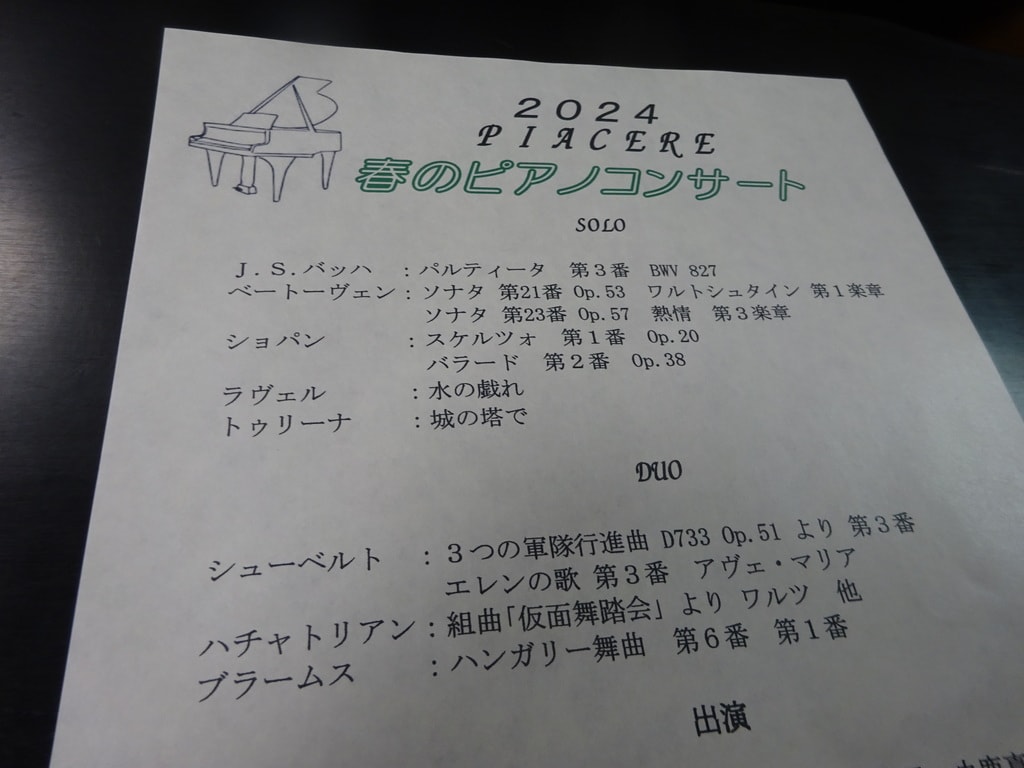 ２０２４
PIACERE
春のピアノコンサート
SOLO
Ｊ．Ｓ．バッハ ：パルティータ 第３番 BWV 827
ベートーヴェン：ソナタ 第21番 Op.53 ワルトシュタイン 第１楽章
ソナタ 第23番 Op.57 熱情 第３楽章
ショパン ：スケルツォ 第１番 Op.20
バラード 第２番 Op.38
ラヴェル ：水の戯れ
トゥリーナ ：城の塔で
DUO
シューベルト ：３つの軍隊行進曲 D733 Op.51 より 第３番
エレンの歌 第３番 アヴェ・マリア
ハチャトリアン：組曲「仮面舞踏会」より ワルツ 他
ブラームス ：ハンガリー舞曲 第６番 第１番
出演